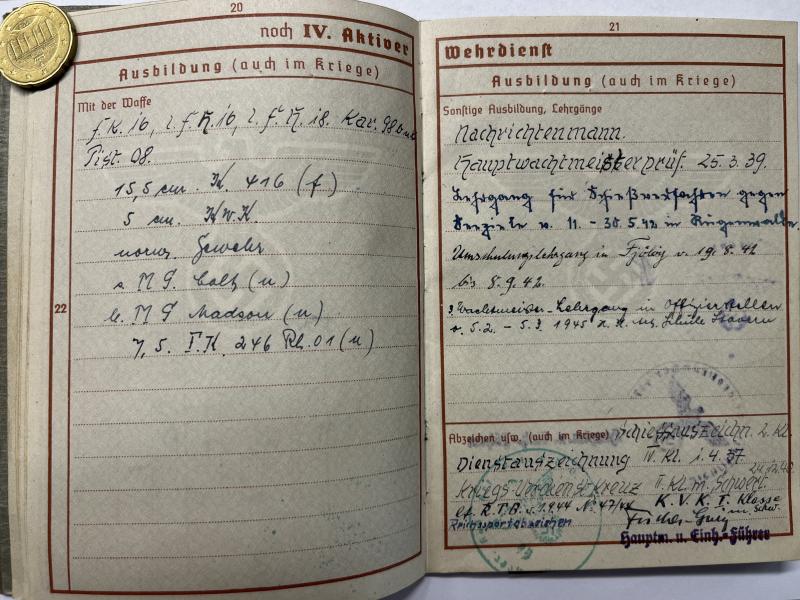 20
noch IV. Aktiver
Ausbildung (auch im Kriege)
Mit der Waffe
f. K. 16, l. f. H. 16, l. f. H. 18. Kar. 98
Pist. 08.
15,5 cm. K. 416 (f)
5 cm. KwK.
norw. Gewehr
s. M G. Colt (n)
le. M G Madson (n)
7,5. F.K. 246 Rh. 01 (n)
22
21
Wehrdienst
Ausbildung (auch im Kriege)
Sonstige Ausbildung, Lehrgänge
Nachrichtenmann.
Hauptwachtmeisterprüf. 25.3.39.
Lehrgang für Schießverfahren gegen
Seeziele v. 11. - 30.5.42 in Rügenwalde.
Umschulungslehrgang in v. 19.8.42
bis 8.9.42.
3. Wachtmeister-Lehrgang in Offizierstellen
v. 5.2. - 5.3. 1945 Schule Stavern
Abzeichen usw. (auch im Kriege) Schießauszeichn. 2. Kl.
Dienstauszeichnung IV. Kl. i. 4. 37
Kriegsverdienstkreuz II. Kl. m. Schwert.
lt. R.T.B. v. 1.9.44 N° 47/44 K. V. K. I. Klasse
m. Schw.
Reichssportabzeichen
Hauptm. u. Einh.-Führer